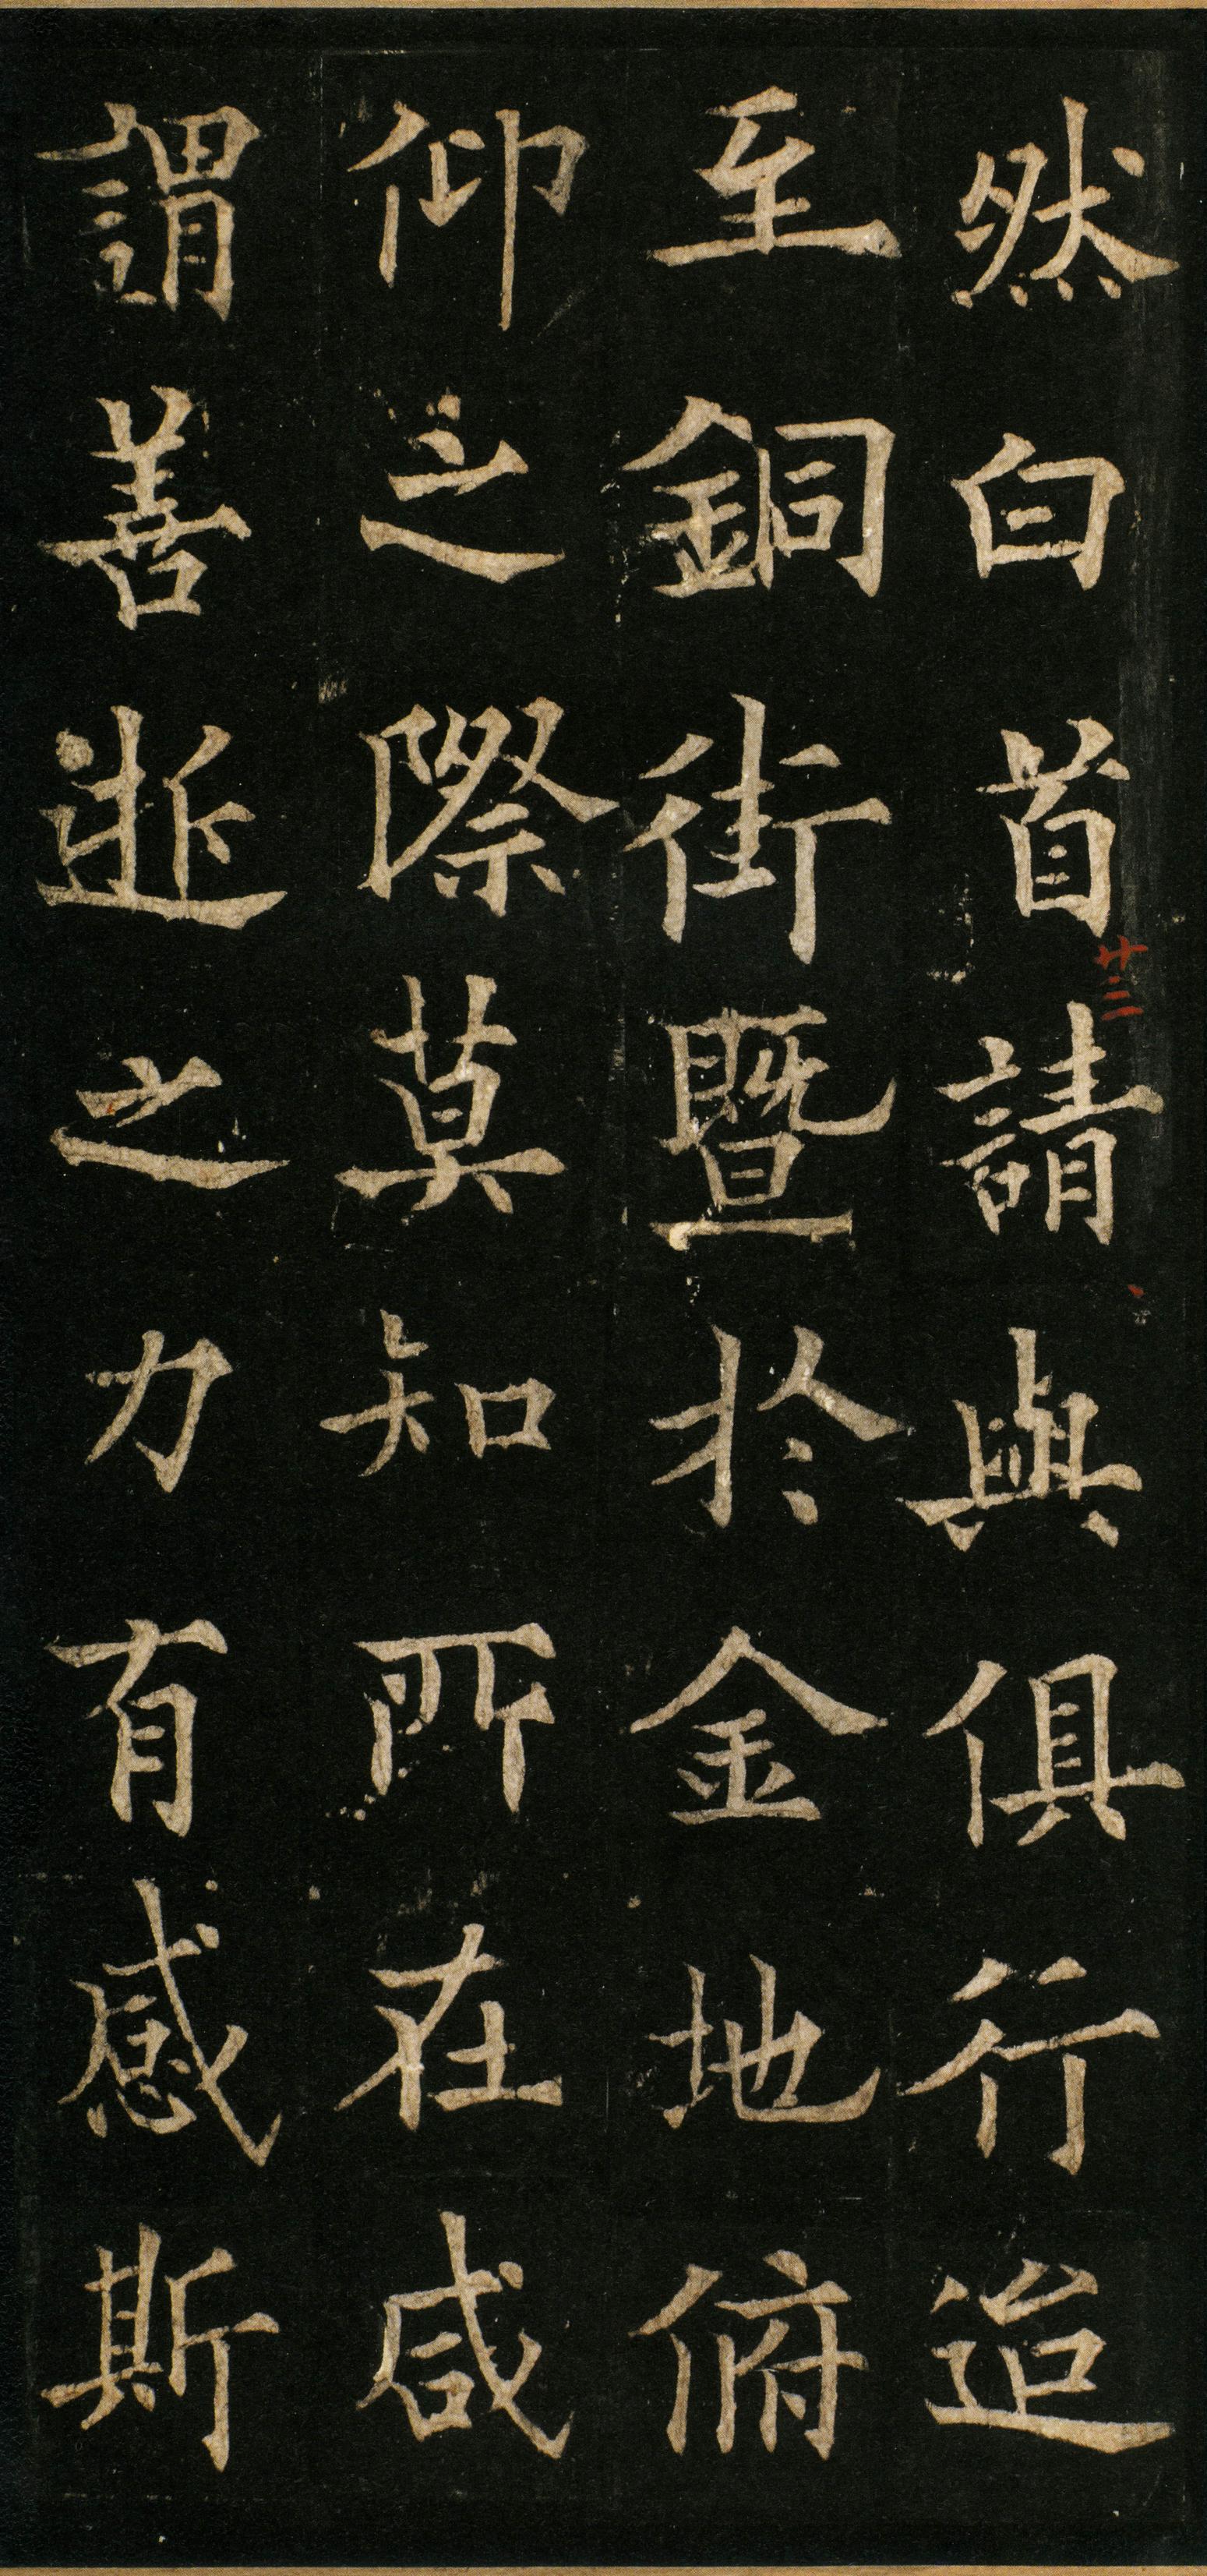 然白首請與俱行迨
至銅街暨於金地俯
仰之際莫知所在咸
謂善逝之力有感斯
廿三